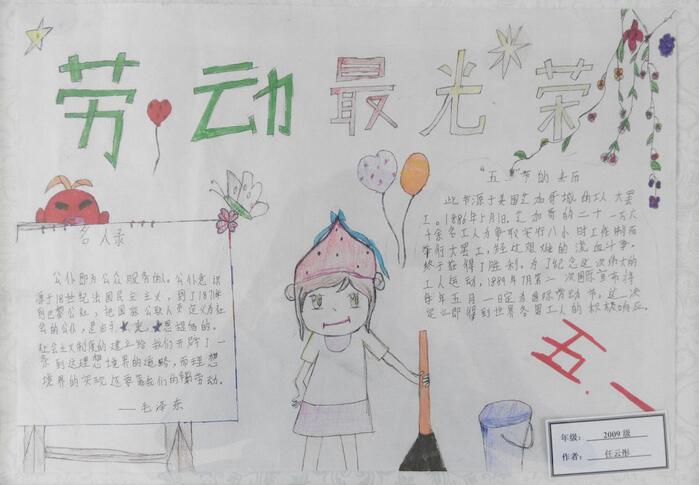 劳动最光荣
"五一"节的来历
此节源于美国芝加哥城的工人大罢
工。1886年5月1日,芝加哥的二十一万六
千余名工人为争取实行八小时工作制而
举行大罢工,经过艰难的流血斗争,
终于获得了胜利。为了纪念这次伟大的
工人运动,1889年7月第二次国际宣布将
每年五月一日定为国际劳动节。这一决
定立即得到世界各国工人的积极响应。
名人录
公仆即为公众服务的人。公仆意识
源于18世纪法国民主主义,到了1871年
的巴黎公社,把国家公职人员定义为社
会的公仆,是由于
思想
的。
社会主义制度的建立给我们开辟了一
条到达理想境界的道路,而理想
境界的实现还要靠我们的辛勤劳动。
——毛泽东
五.一
年级: 2009级
作者: 任云彤